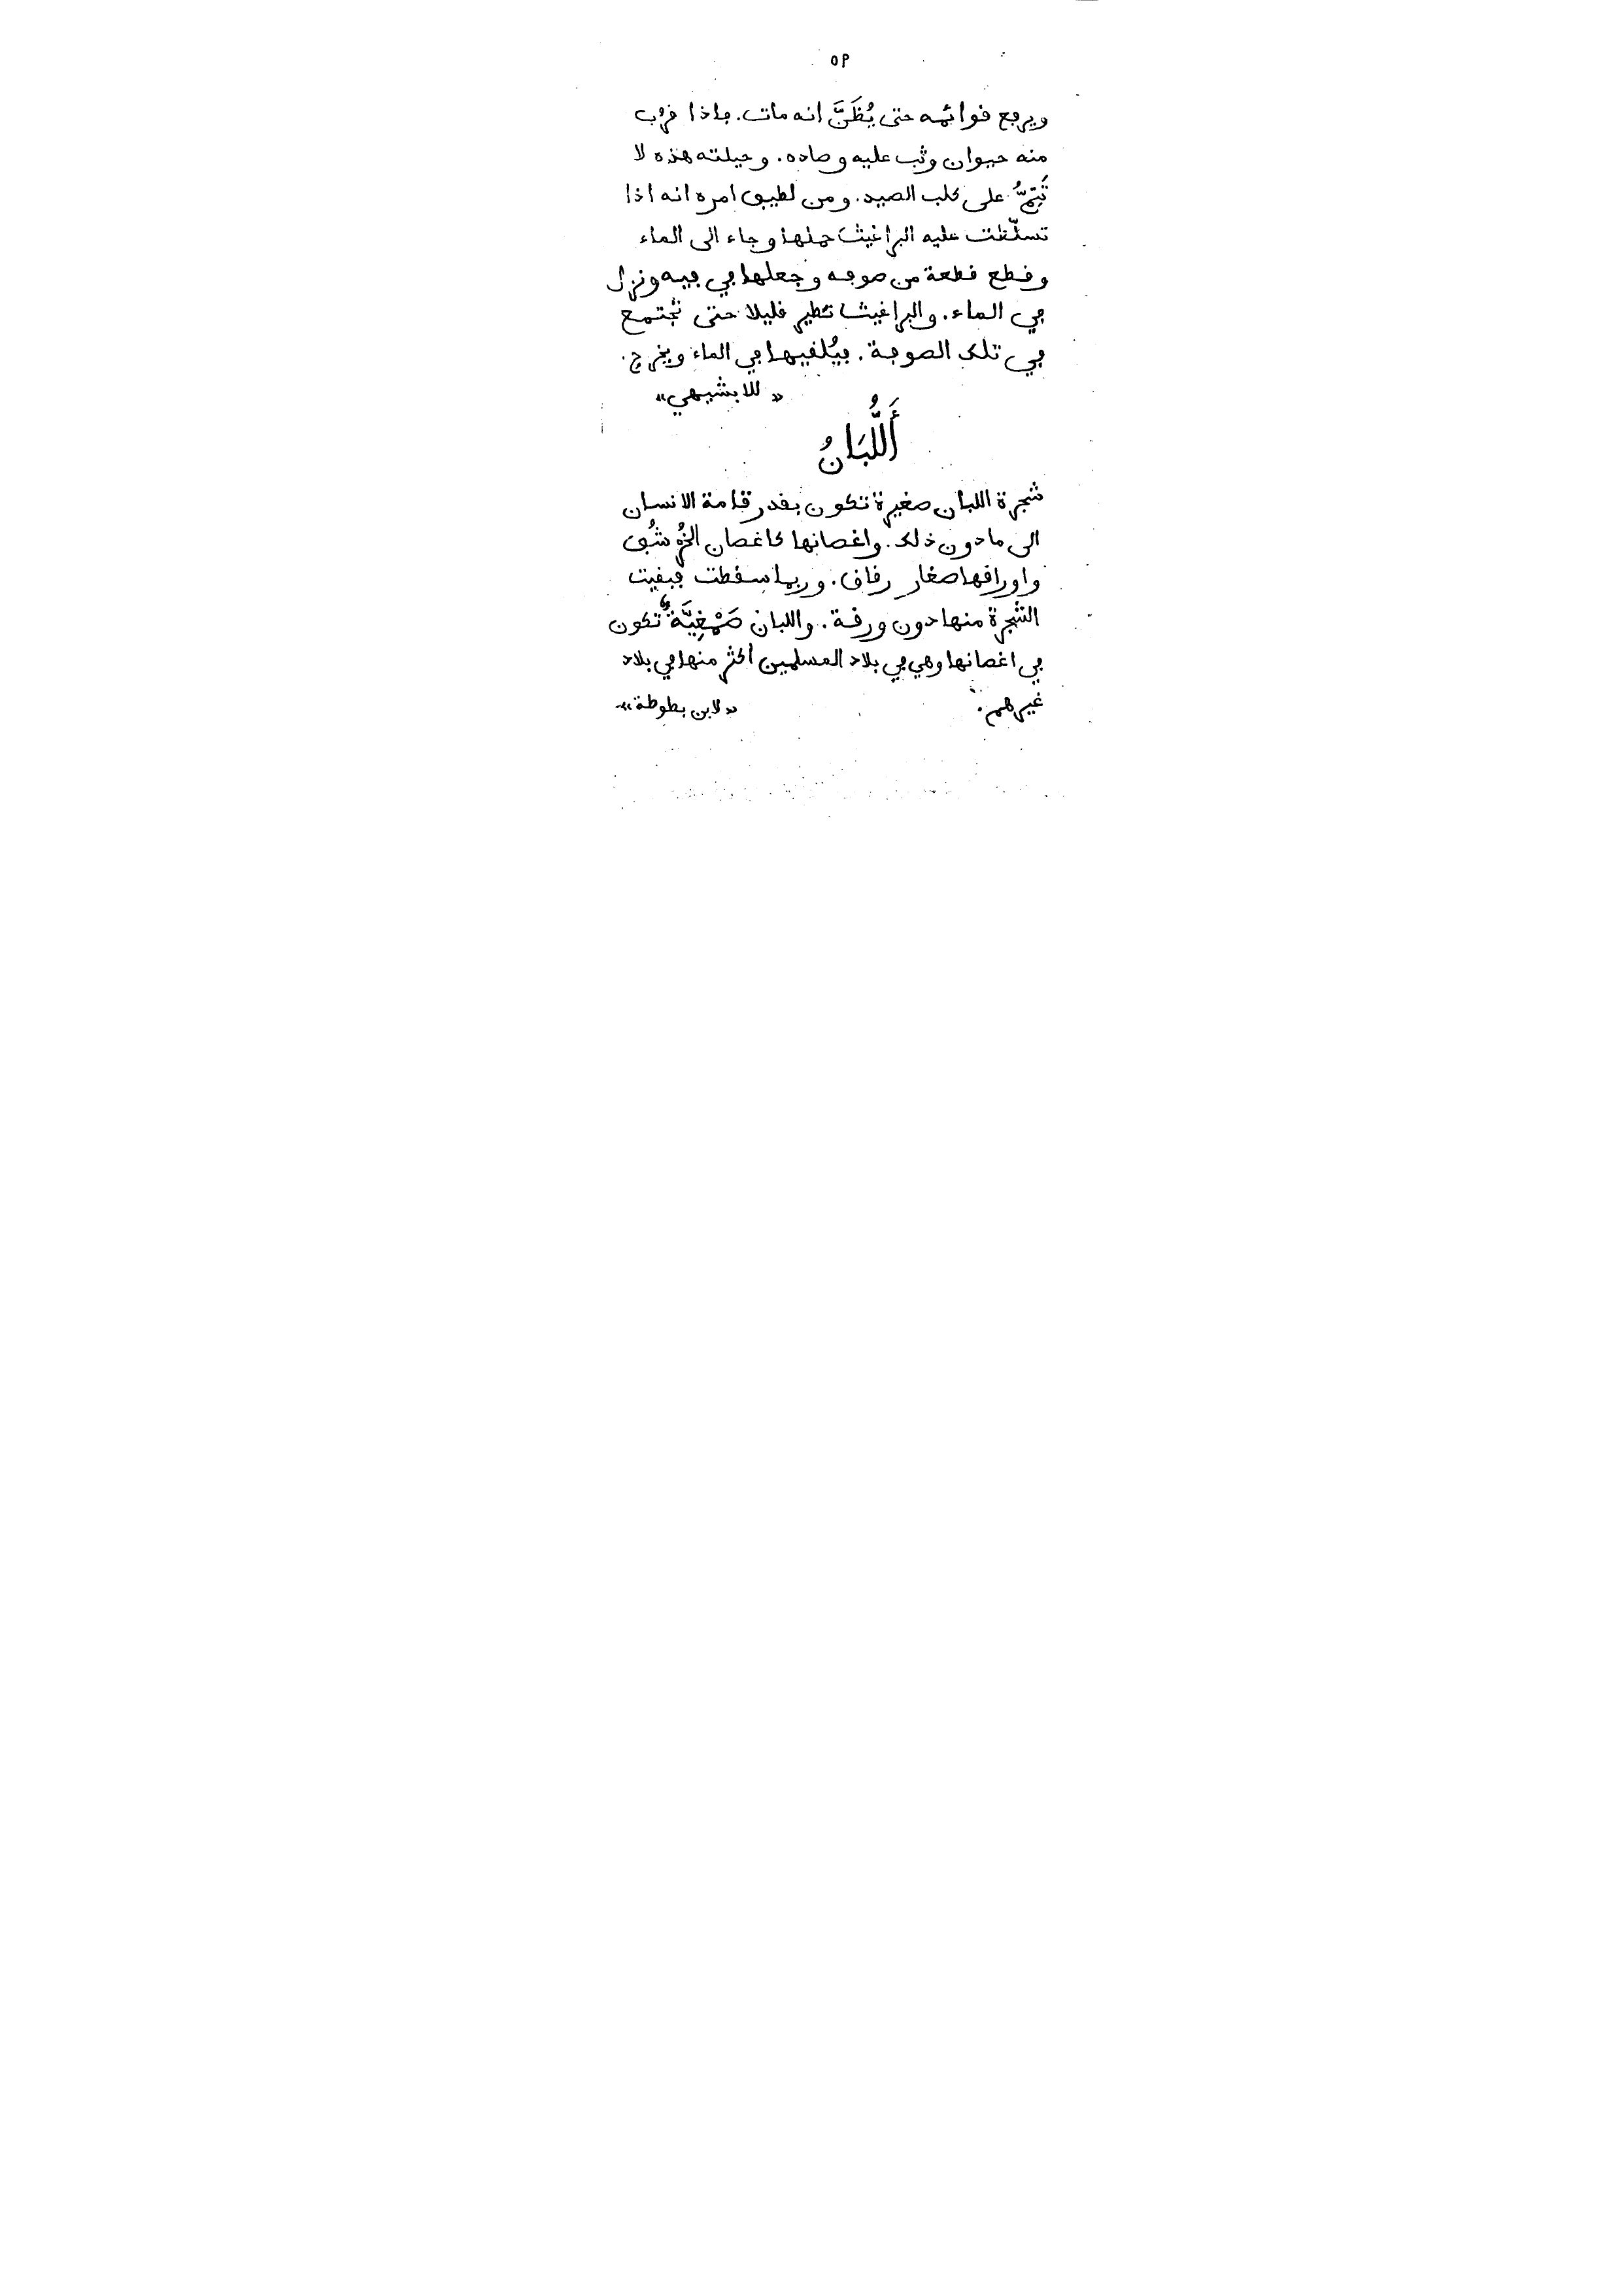 ٥٩
ويرفع قوائمه حتى يُظَنَّ انه مات. فاذا قرُب
منه حيوان وثب عليه وصاده. وحيلته هذه لا
تَتِمُّ على كلب الصيد. ومن لطيف امره انه اذا
تسلّطت عليه البراغيث حملها وجاء الى الماء
وقطع قطعة من صوفه وجعلها في فيه ونزل
في الماء. والبراغيث تطير قليلا حتى تجتمع
في تلك الصوفة. فيُلقيها في الماء ويخرج.
«للابشيهي»
أَللُّبَانُ
شجرة اللبان صغيرة تكون بقدر قامة الانسان
الى ما دون ذلك. واغصانها كاغصان الخُرْشُف
واوراقها صغار رقاق. وربما سقطت فبقيت
الشجرة منها دون ورقة. واللبان صَمْغِيَّةٌ تكون
في اغصانها وهي في بلاد المسلمين اكثر منها في بلاد
غيرهم. «لابن بطوطة»